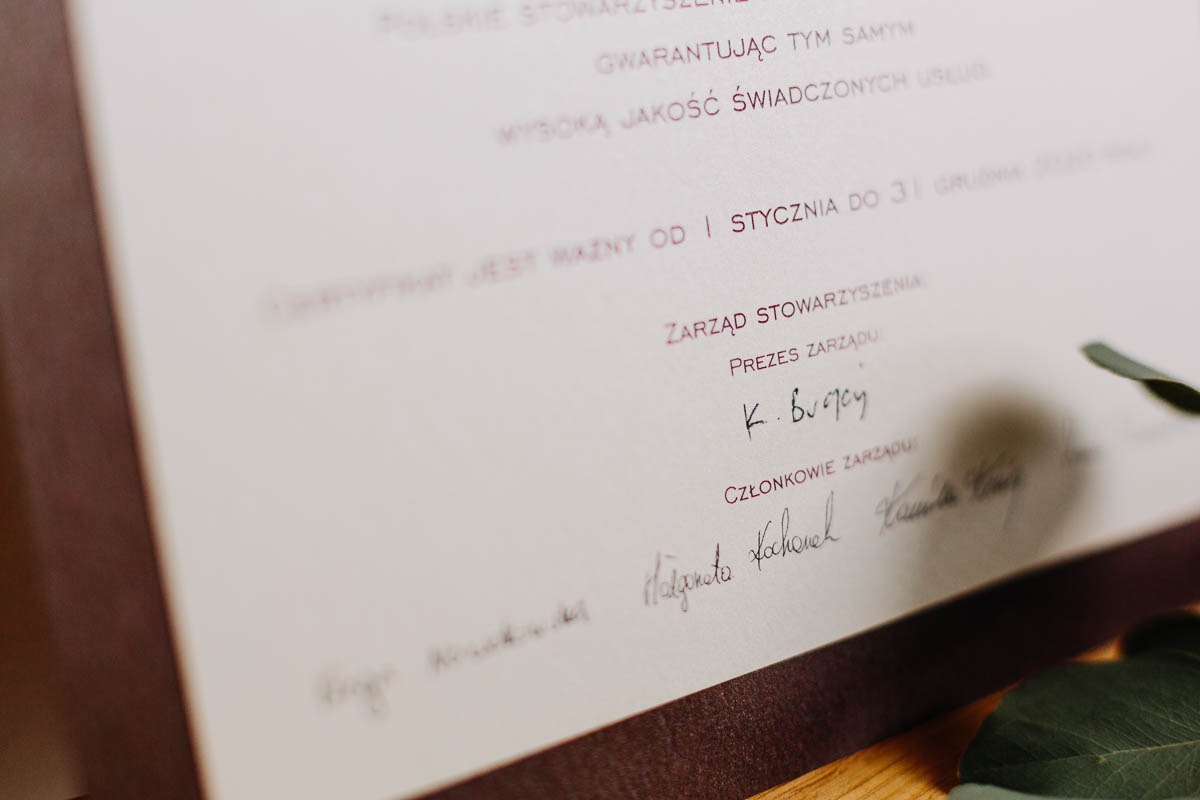 POLSKIE STOWARZYSZENIE
GWARANTUJĄC TYM SAMYM
WYSOKĄ JAKOŚĆ ŚWIADCZONYCH USŁUG.
CERTYFIKAT JEST WAŻNY OD 1 STYCZNIA DO 31 GRUDNIA
ZARZĄD STOWARZYSZENIA:
PREZES ZARZĄDU:
K.
CZŁONKOWIE ZARZĄDU:
Małgorzata Kochanek Kamila